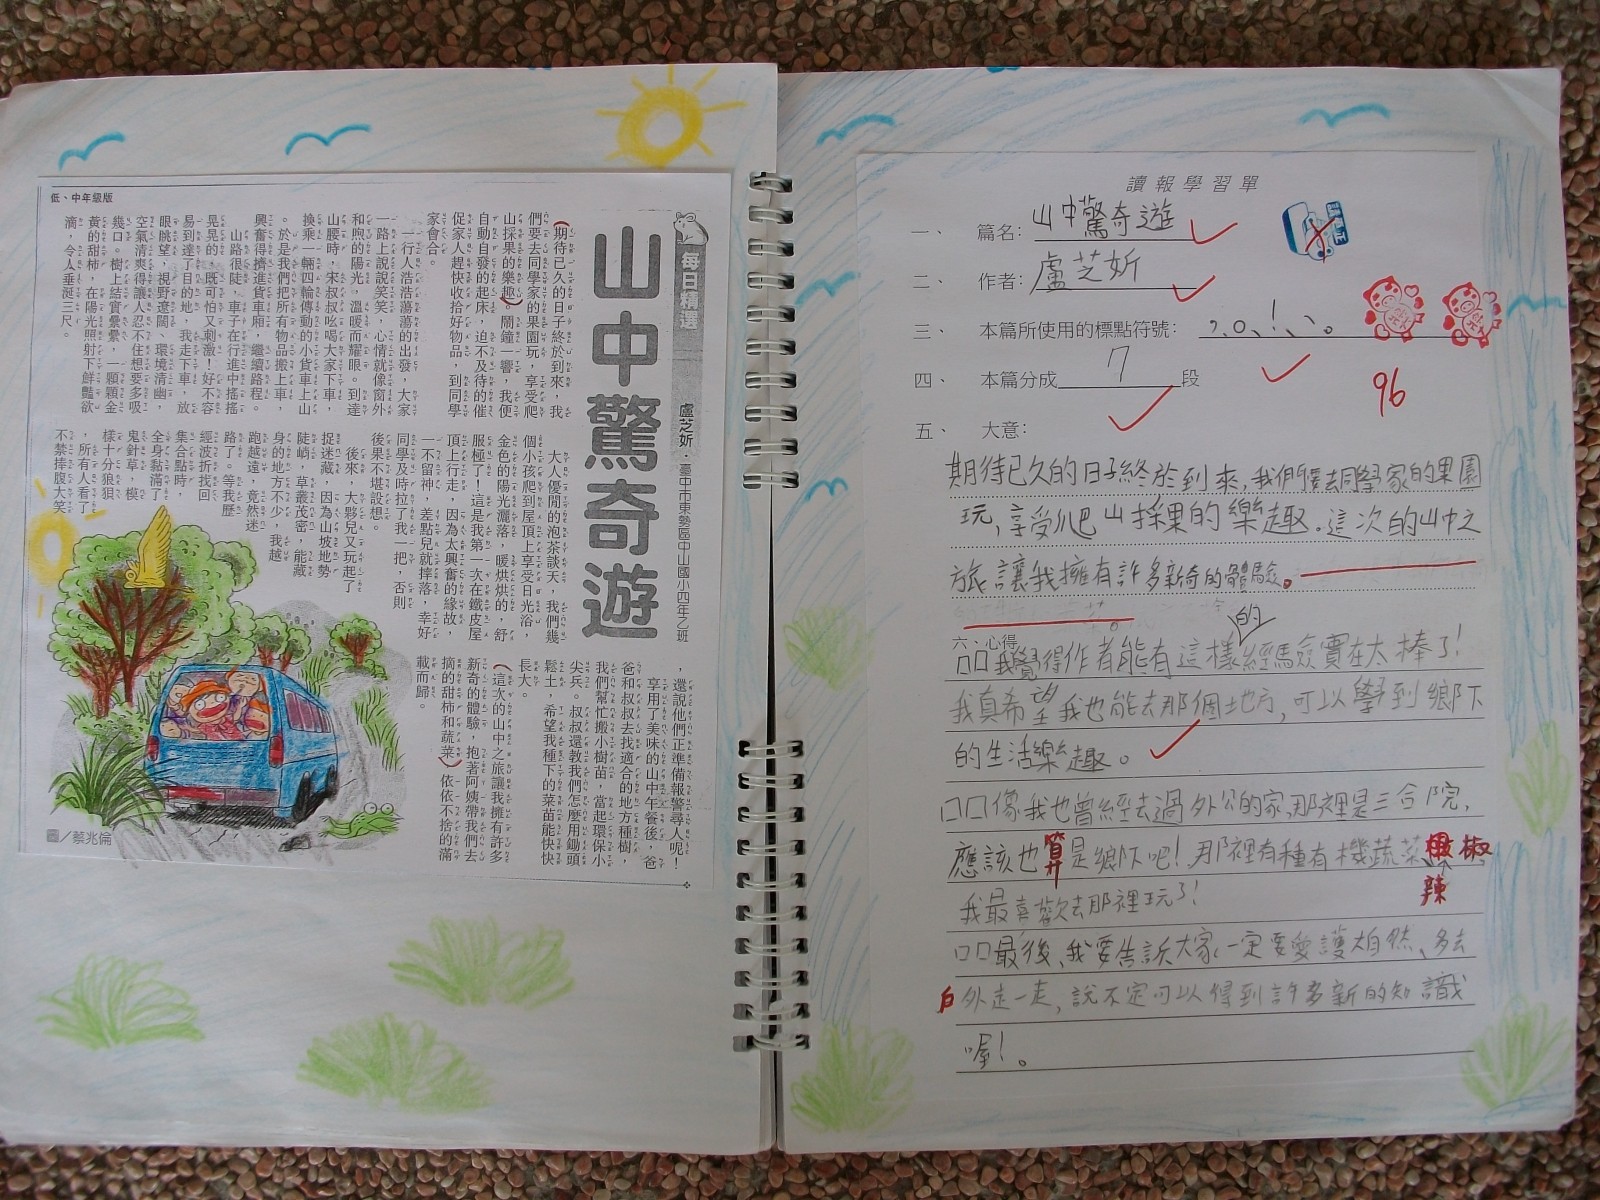 低、中年級版
每日精選
山中驚奇遊
盧芝妡．臺中市東勢區中山國小四年乙班
(期待已久的日子終於到來，我
們要去同學家的果園玩，享受爬
山採果的樂趣)鬧鐘一響，我便
自動自發的起床，迫不及待的催
促家人趕快收拾好物品，到同學
家會合。
一行人浩浩蕩蕩的出發，大家
一路上說說笑笑，心情就像窗外
和煦的陽光，溫暖而耀眼。到達
山腰時，宋叔叔吆喝大家下車，
換乘一輛四輪傳動的小貨車上山
。於是我們把所有物品搬上車，
興奮得擠進貨車廂，繼續路程。
山路很陡，車子在行進中搖搖
晃晃的，既可怕又刺激！好不容
易到達了目的地，我走下車，放
眼眺望，視野遼闊、環境清幽，
空氣清爽得讓人忍不住想要多吸
幾口。樹上結實纍纍，一顆顆金
黃的甜柿，在陽光照射下鮮豔欲
滴，令人垂涎三尺。
大人優閒的泡茶談天，我們幾
個小孩爬到屋頂上享受日光浴，
金色的陽光灑落，暖烘烘的，舒
服極了！這是我第一次在鐵皮屋
頂上行走，因為太興奮的緣故，
一不留神，差點兒就摔落，幸好
同學及時拉了我一把，否則
後果不堪設想。
後來，大夥兒又玩起了
捉迷藏，因為山坡地勢
陡峭，草叢茂密，能藏
身的地方不少，我越
跑越遠，竟然迷
路了。等我歷
經波折找回
集合點時，
全身黏滿了
鬼針草，模
樣十分狼狽
，所有人看了
不禁捧腹大笑
，還說他們正準備報警尋人呢！
享用了美味的山中午餐後，爸
爸和叔叔去找適合的地方種樹，
我們幫忙搬小樹苗，當起環保小
尖兵。叔叔還教我們怎麼用鋤頭
鬆土，希望我種下的菜苗能快快
長大。
(這次的山中之旅讓我擁有許多
新奇的體驗，抱著阿姨帶我們去
摘的甜柿和蔬菜)依依不捨的滿
載而歸。
圖／蔡兆倫
讀報學習單
一、 篇名：山中驚奇遊
二、 作者：盧芝妡
三、 本篇所使用的標點符號：，。！、。
四、 本篇分成7段
96
五、 大意：
期待已久的日子終於到來，我們要去同學家的果園
玩，享受爬山採果的樂趣。這次的山中之
旅讓我擁有許多新奇的體驗。
六、心得
口口我覺得作者能有這樣的經驗實在太棒了！
我真希望我也能去那個地方，可以學到鄉下
的生活樂趣。
口口像我也曾經去過外公的家，那裡是三合院，
應該也算是鄉下吧！那裡有種有機蔬菜 辣椒
我最喜歡去那裡玩了！
口口最後、我要告訴大家一定要愛護大自然、多去
戶外走一走，說不定可以得到許多新的知識
喔！。